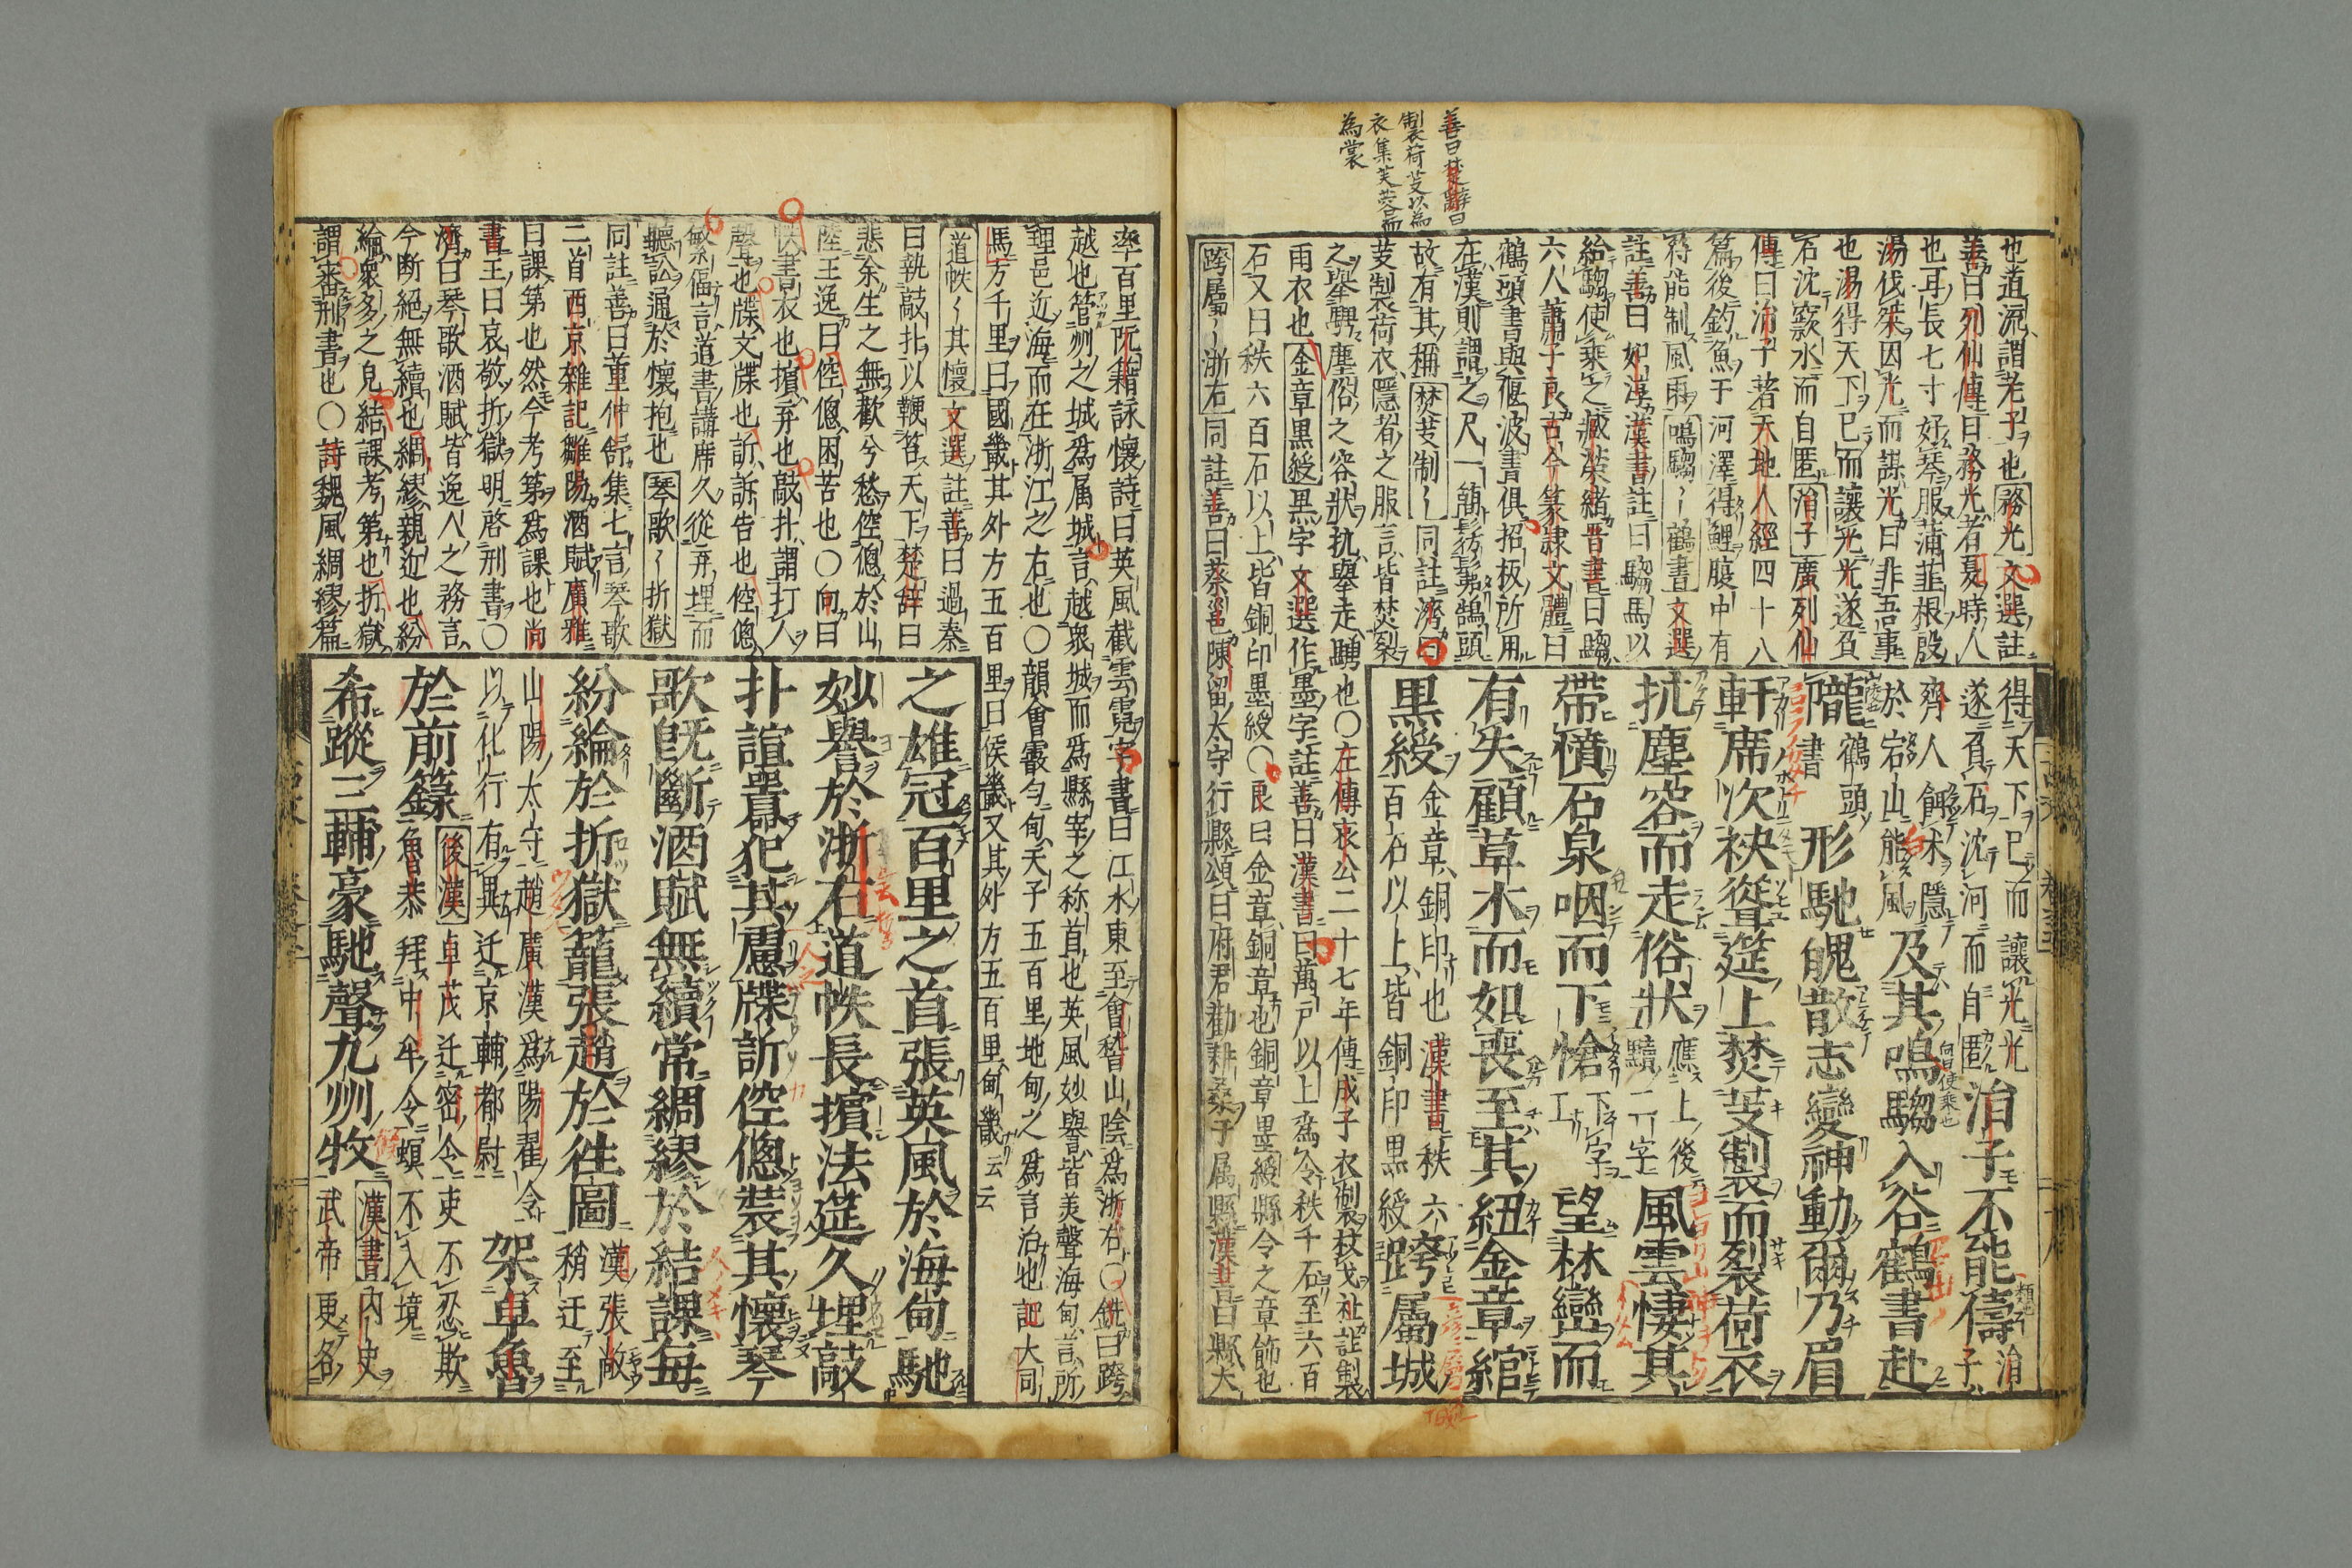 善曰楚辭曰
製荷芰以為
衣集芙蓉而
為裳
也道流謂老子也務光文選註
善曰列仙傳曰務光者夏時人
也耳長七寸好琴服蒲韮根殷
湯伐桀因光而謀光曰非吾事
也湯得天下已而讓光光遂負
石沈窾水而自匿涓子廣列仙
傳曰涓子著天地人經四十八
篇後釣魚于河澤得鯉腹中有
符能制風雨鳴騶〻鶴書文選
註善曰如淳漢書註曰騶馬以
給騶使乘之臧榮緒晉書曰騶
六人蕭子良古今篆隸文體曰
鶴頭書與偃波書俱招板所用
在漢則謂之尺一簡髣髴鵠頭
故有其稱焚芰制〻同註濟曰
芰製荷衣隱者之服言皆焚裂
之舉騁塵俗之容狀抗舉走騁也〇左傳哀公二十七年傳成子衣製杖戈社註製
雨衣也金章黒綬黒字文選作墨字註善曰漢書曰萬戸以上為令秩千石至六百
石又曰秩六百石以上皆銅印墨綬〇良曰金章銅章也銅章墨綬縣令之章飾也
跨屬〻浙右同註善曰蔡邕陳留太守行縣頌曰府君勸耕桑于属縣漢書曰縣大
得天下已而讓光光
遂負石沈河而自匿
涓子不能儔
涓子
齊人餌朮隱
於宕山能風
及其鳴騶入谷鶴書赴
隴
鶴頭
書
形馳魄散志變神動爾乃眉
軒席次袂聳筵上焚芰製而裂荷衣
抗塵容而走俗狀
應上後
二字
風雲悽其
帶憤石泉咽而下愴
下字
望林巒而
有失顧草木而如喪至其紐金章綰
黒綬
金章銅印也漢書秩六
百石以上皆銅印黒綬
跨屬城
率百里阮籍詠懷詩曰英風截雲霓字書曰江水東至會稽山陰為浙右〇銑曰跨
越也管州之城為属城言越衆城而為縣宰之称首也英風妙譽皆美聲海甸言所
理邑近海而在浙江之右也〇韻會霰勻甸天子五百里地甸之為言治也記大同
馬方千里曰國畿其外方五百里曰侯畿又其外方五百里甸畿云云
道帙〻其懷文選註善曰過秦
曰執敲扑以鞭笞天下楚辞曰
悲余生之無歡兮愁倥傯於山
陸王逸曰倥傯困苦也〇向曰
帙書衣也擯弃也敲扑謂打人
聲也牒文牒也訴訴告也倥傯
繁偪言道書講席久從弃埋而
聽訟通於懷抱也琴歌〻折獄
同註善曰董仲舒集七言琴歌
二首西京雜記鄒陽酒賦廣雅
曰課第也然今考第為課也尚
書王曰哀敬折獄明啓刑書〇
濟曰琴歌酒賦皆逸人之務言
今断絕無續也綢繆親近也紛
綸衆多之皃結課考第也折獄
謂審刑書也〇詩魏風綢繆篇
之雄冠百里之首張英風於海甸馳
妙譽於浙右道帙長擯法筵久埋敲
扑諠囂犯其慮牒訴倥傯裝其懷琴
歌既斷酒賦無續常綢繆於結課每
紛綸於折獄籠張趙於徃圖
漢張敞
稍迁至
山陽太守趙廣漢為陽翟令
以化行有異迁京輔都尉
架卓魯
於前籙
後漢卓茂迁密令吏不忍欺
魯恭拜中牟令螟不入境
希蹤三輔豪馳聲九州牧
漢書内史
武帝更名